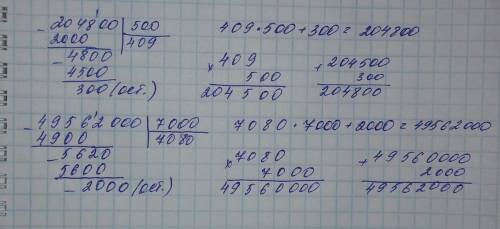 - 204800 | 500
2000 | 409
- 4800
4500
300 (ост.)
409 · 500 + 300 = 204800
× 409
500
204500
+ 204500
300
204800
- 49562000 | 7000
4900 | 7080
- 5620
5600
- 2000 (ост.)
7080 · 7000 + 2000 = 49562000
× 7080
7000
49560000
+ 49560000
2000
49562000